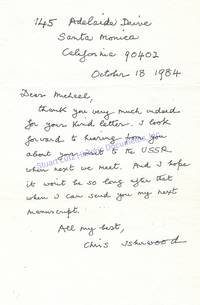 145 Adelaide Drive
Santa Monica
California 90402
October 18 1984
Dear Michael,
thank you very much indeed
for your kind letter. I look
forward to hearing from you
about your visit to the USSR
when next we meet. And I hope
it won't be so long after that
when I can send you my next
manuscript.
All my best,
Chris Isherwood